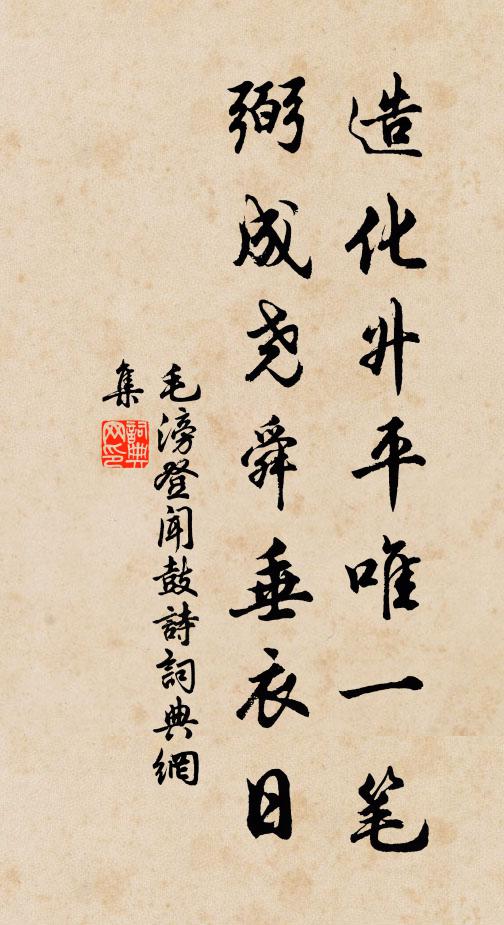 造化升平唯一笔
弼成尧舜垂衣日
毛滂登闻鼓詩詞典網
集
詞典
网印